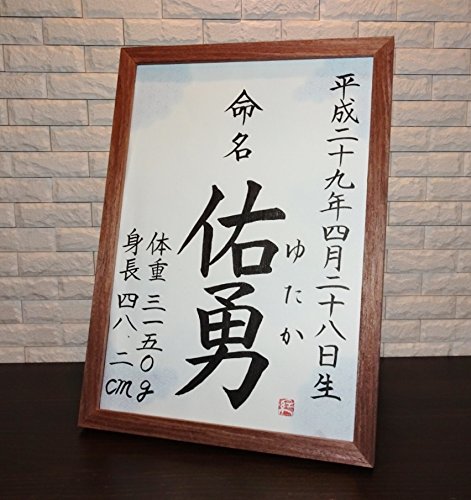 平成二十九年四月二十八日生
ゆたか
命名
佑勇
体重 三一五〇g
身長 四八.二cm